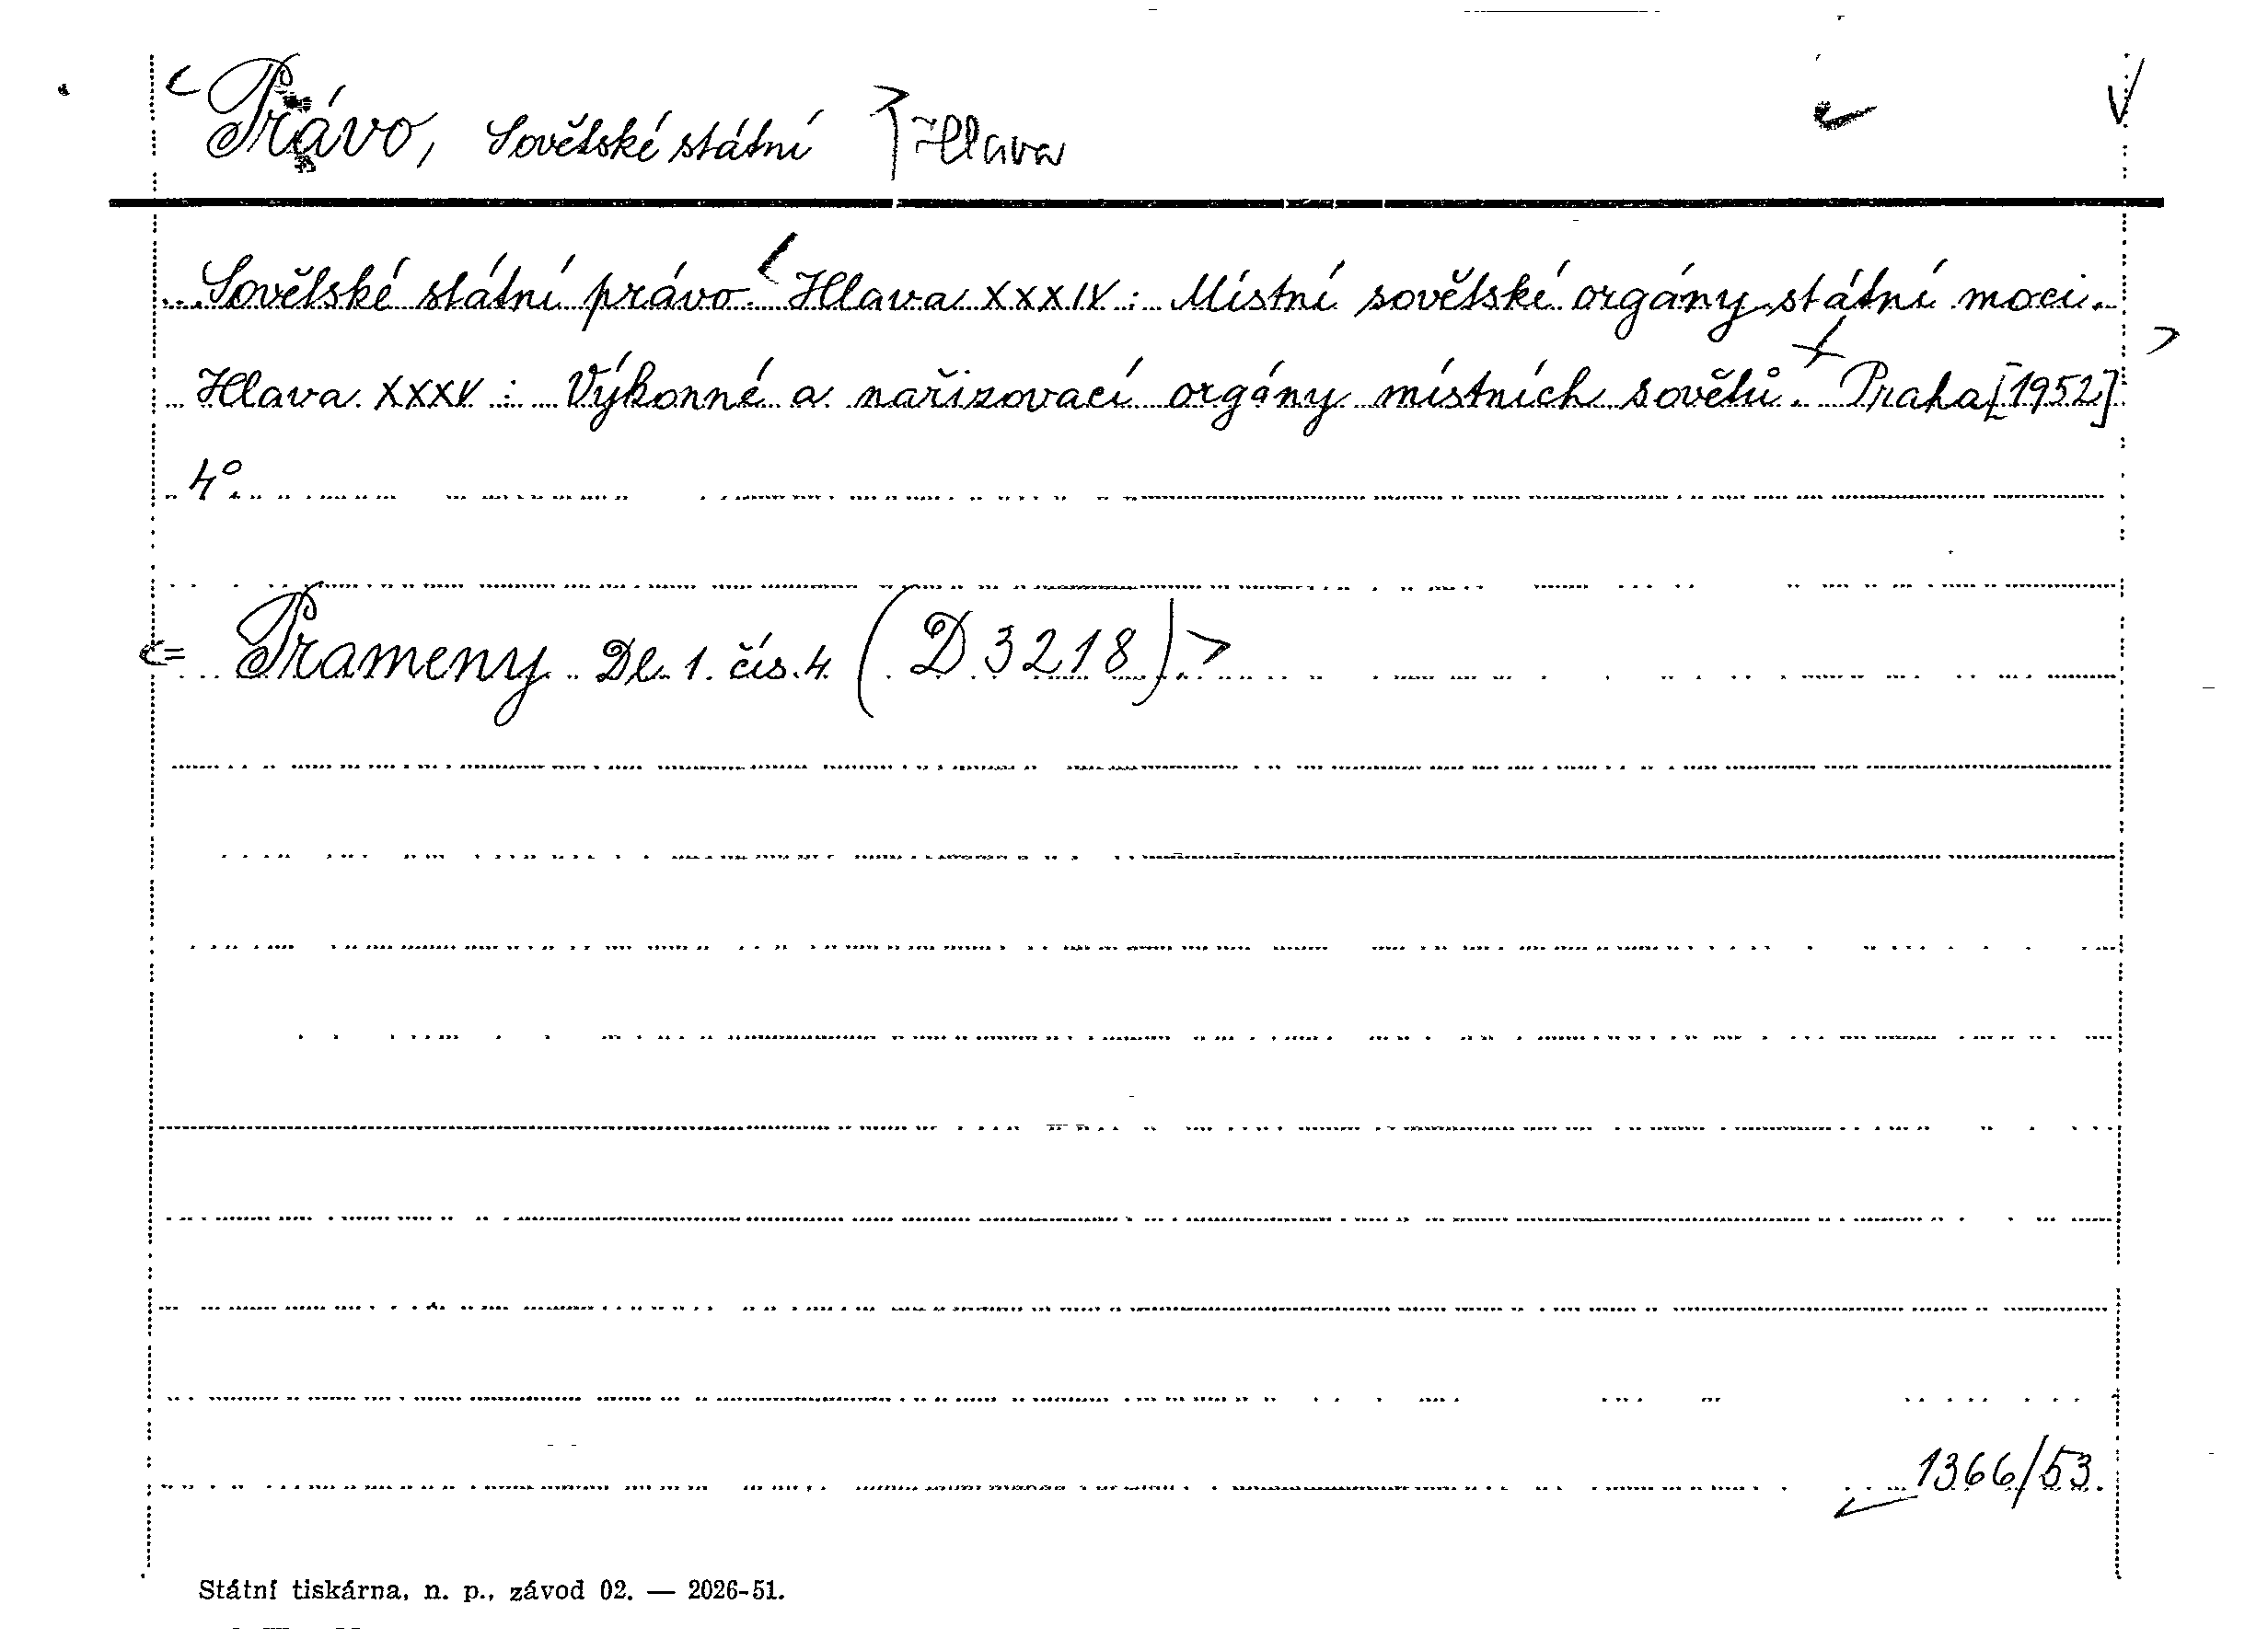 Právo, Sovětské státní Hlava
Sovětské státní právo. Hlava XXXIV: Místní sovětské orgány státní moci.
Hlava XXXV: Výkonné a nařizovací orgány místních sovětů. Praha [1952]
4°.
Prameny Dl. 1. čís. 4 (D 3218)
1366/53.
Státní tiskárna, n. p., závod 02. — 2026-51.